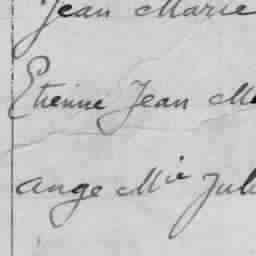 Jean Marie
Etienne Jean M
Ange Mie Jul